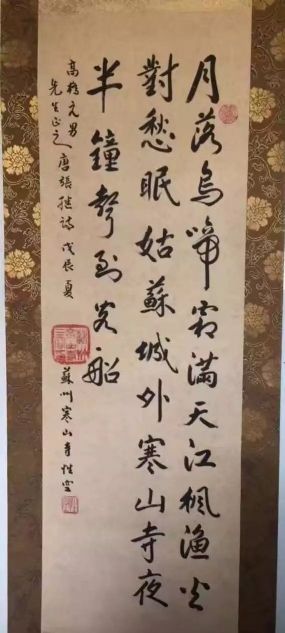 月落烏啼霜滿天江楓漁火
對愁眠姑蘇城外寒山寺夜
半鐘聲到客船
高橋元男
先生正之
唐張继詩 戊辰夏
蘇州寒山寺性空